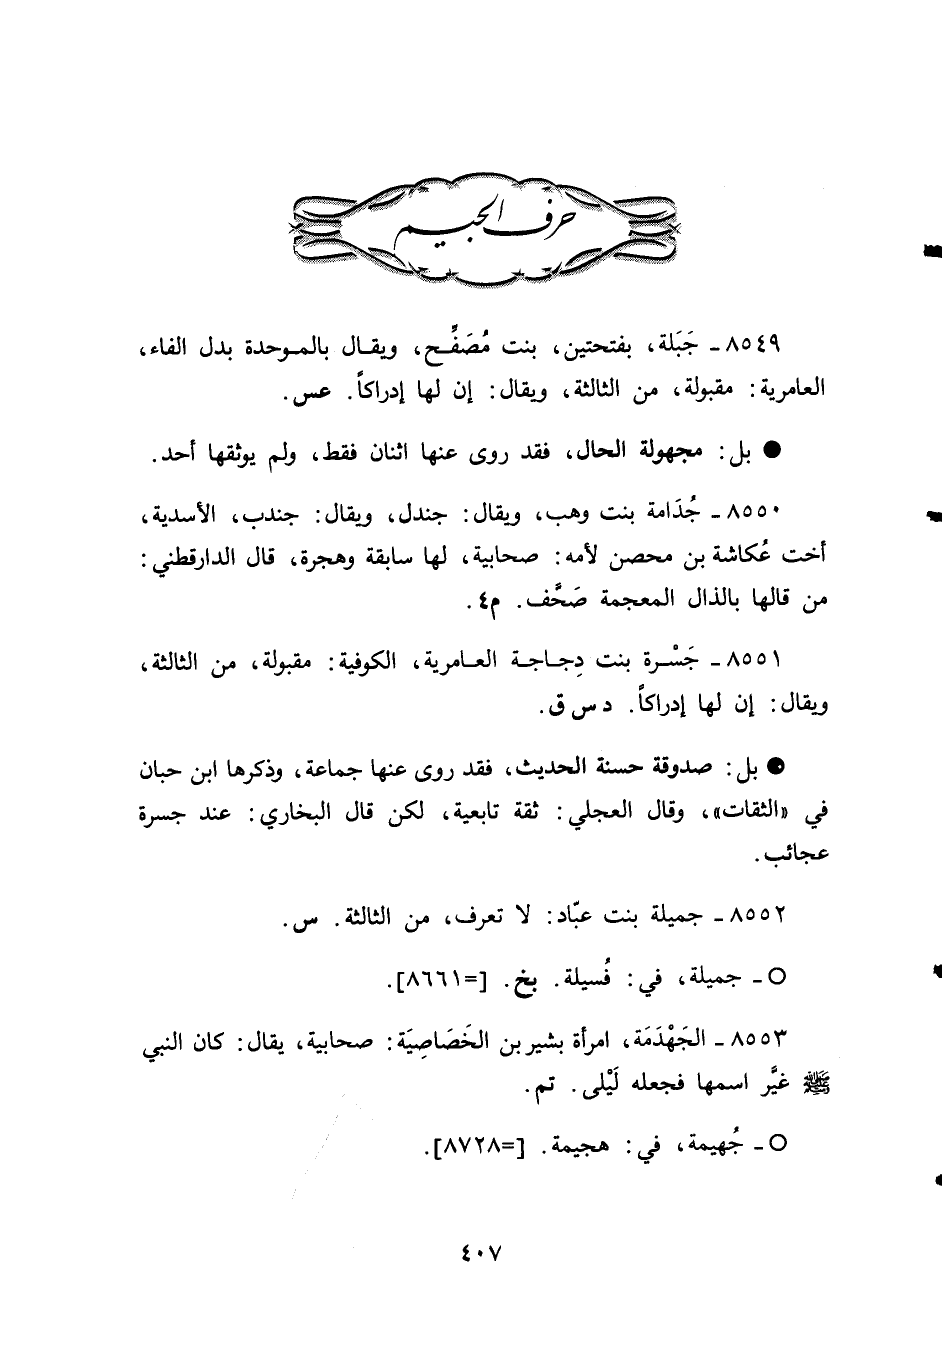 حرف الجيم
٨٥٤٩ ـ جَبَلة، بفتحتين، بنت مُصَفَّح، ويقال بالموحدة بدل الفاء،
العامرية: مقبولة، من الثالثة، ويقال: إن لها إدراكاً. عس.
● بل: مجهولة الحال، فقد روى عنها اثنان فقط، ولم يوثقها أحد.
٨٥٥٠ ـ جُدَامة بنت وهب، ويقال: جندل، ويقال: جندب، الأسدية،
أخت عُكاشة بن محصن لأمه: صحابية، لها سابقة وهجرة، قال الدارقطني:
من قالها بالذال المعجمة صَحَّف. م٤.
٨٥٥١ ـ جَسْرة بنت دِجاجة العامرية، الكوفية: مقبولة، من الثالثة،
ويقال: إن لها إدراكاً. د س ق.
● بل: صدوقة حسنة الحديث، فقد روى عنها جماعة، وذكرها ابن حبان
في «الثقات»، وقال العجلي: ثقة تابعية، لكن قال البخاري: عند جسرة
عجائب.
٨٥٥٢ ـ جميلة بنت عبّاد: لا تعرف، من الثالثة. س.
○ ـ جميلة، في: فُسيلة. بخ. [=٨٦٦١].
٨٥٥٣ ـ الجَهْدَمَة، امرأة بشير بن الخَصَاصِيَة: صحابية، يقال: كان النبي
ﷺ غيَّر اسمها فجعله لَيْلى. تم.
○ ـ جُهيمة، في: هجيمة. [=٨٧٢٨].
٤٠٧